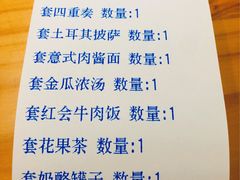 套四重奏 数量:1
套土耳其披萨 数量:1
套意式肉酱面 数量:1
套金瓜浓汤 数量:1
套红会牛肉饭 数量:1
套花果茶 数量:1
套奶酪罐子 数量:1